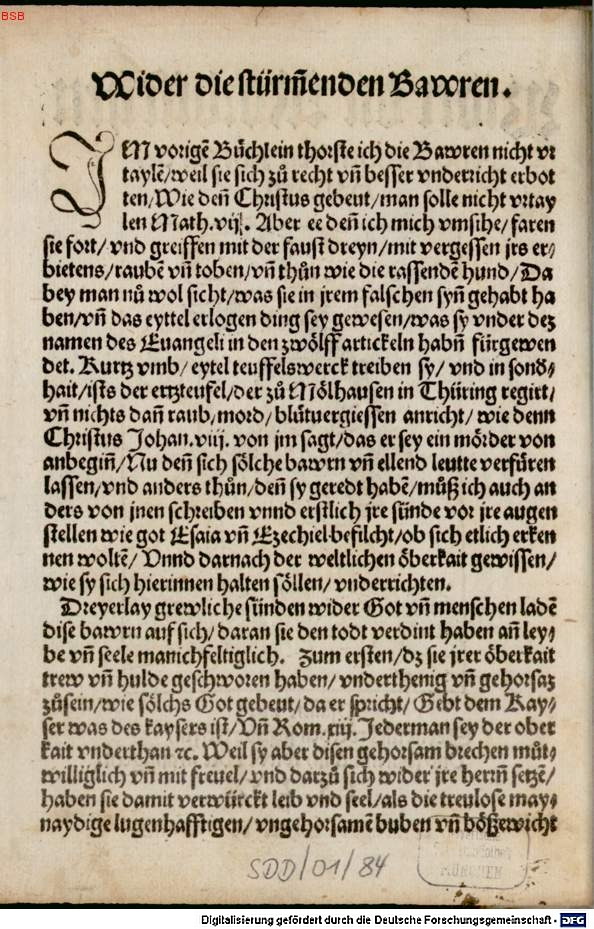 BSB
Wider die stürm̃enden Bawren.
IM vorigẽ Büchlein thorste ich die Bawren nicht vr
taylẽ/weil sie sich zů recht vñ besser vnderricht erbot
ten/Wie deñ Christus gebeut/man solle nicht vrtay
len Math.vij. Aber ee deñ ich mich vmsihe/faren
sie fort/vnd greiffen mit der faust dreyn/mit vergessen jrs er⸗
bietens/raubẽ vñ toben/vñ thůn wie die rassendẽ hund/Da
bey man nů wol sicht/was sie in jrem falschen syñ gehabt ha
ben/vñ das eyttel erlogen ding sey gewesen/was sy vnder dez
namen des Euangeli in den zwölff artickeln habñ fürgewen
det. Kurtz vmb/eytel teuffelswerck treiben sy/vnd in sonđ⸗
hait/ists der ertzteufel/der zů Mölhausen in Thüring regirt/
vñ nichts dañ raub/mord/blůtuergiessen anricht/wie denn
Christus Johan.viij. von jm sagt/das er sey ein mörder von
anbegiñ/Nu deñ sich sölche bawrn vñ ellend leutte verfüren
lassen/vnd anders thůn/deñ sy geredt habẽ/můß ich auch an
ders von jnen schreiben vnnd erstlich jre sünde vor jre augen
stellen wie got Esaia vñ Ezechiel befilcht/ob sich etlich erken
nen woltẽ/Vnnd darnach der weltlichen öberkait gewissen/
wie sy sich hierinnen halten söllen/vnderrichten.
Dreyerlay grewliche sünden wider Got vñ menschen ladẽ
dise bawrn auf sich/daran sie den todt verdint haben añ ley⸗
be vñ seele manichfeltiglich. Zum ersten/dz sie jrer öberkait
trew vñ hulde geschworen haben/vnderthenig vñ gehorsaz
zůsein/wie sölchs Got gebeut/da er spricht/Gebt dem Kay⸗
ser was des kaysers ist/Vñ Rom.xiij. Jederman sey der ober
kait vnderthan ꝛc. Weil sy aber disen gehorsam brechen můt⸗
williglich vñ mit freuel/vnd darzů sich wider jre herrñ setzẽ/
haben sie damit verwürckt leib vnd seel/als die treulose may⸗
naydige lugenhafftigen/vngehorsamẽ buben vñ bößewicht
SDD/01/84
MÜNCHEN
Digitalisierung gefördert durch die Deutsche Forschungsgemeinschaft - DFG